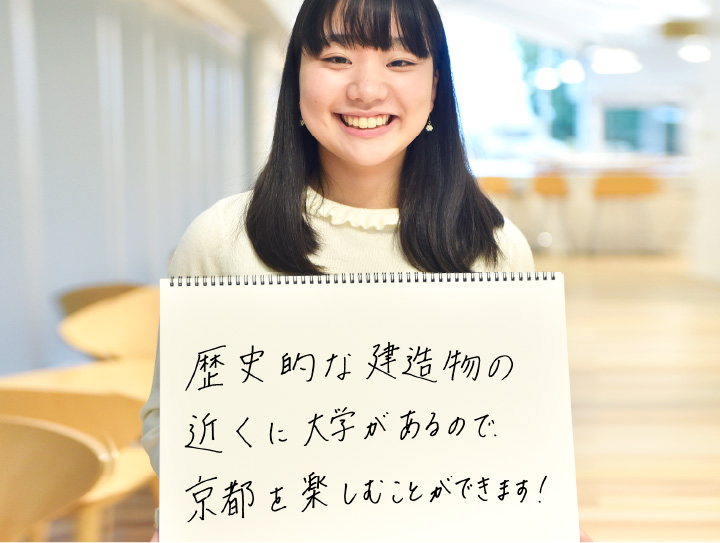 歴史的な建造物の
近くに大学があるので、
京都を楽しむことができます！